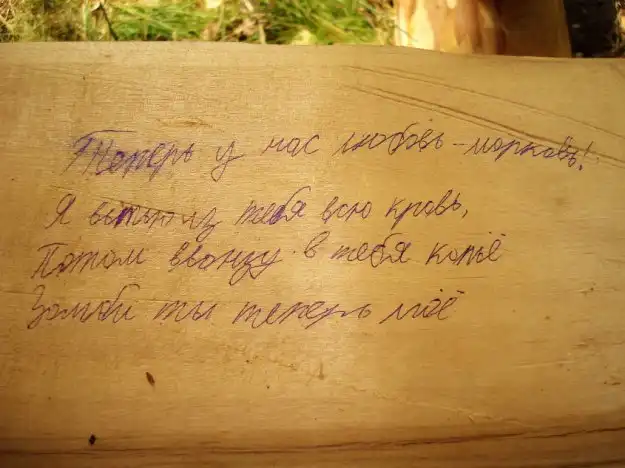 Теперь у нас любовь-морковь!
Я выпью из тебя всю кровь,
Потом ввонзу в тебя копьё
Зомби ты теперь моё